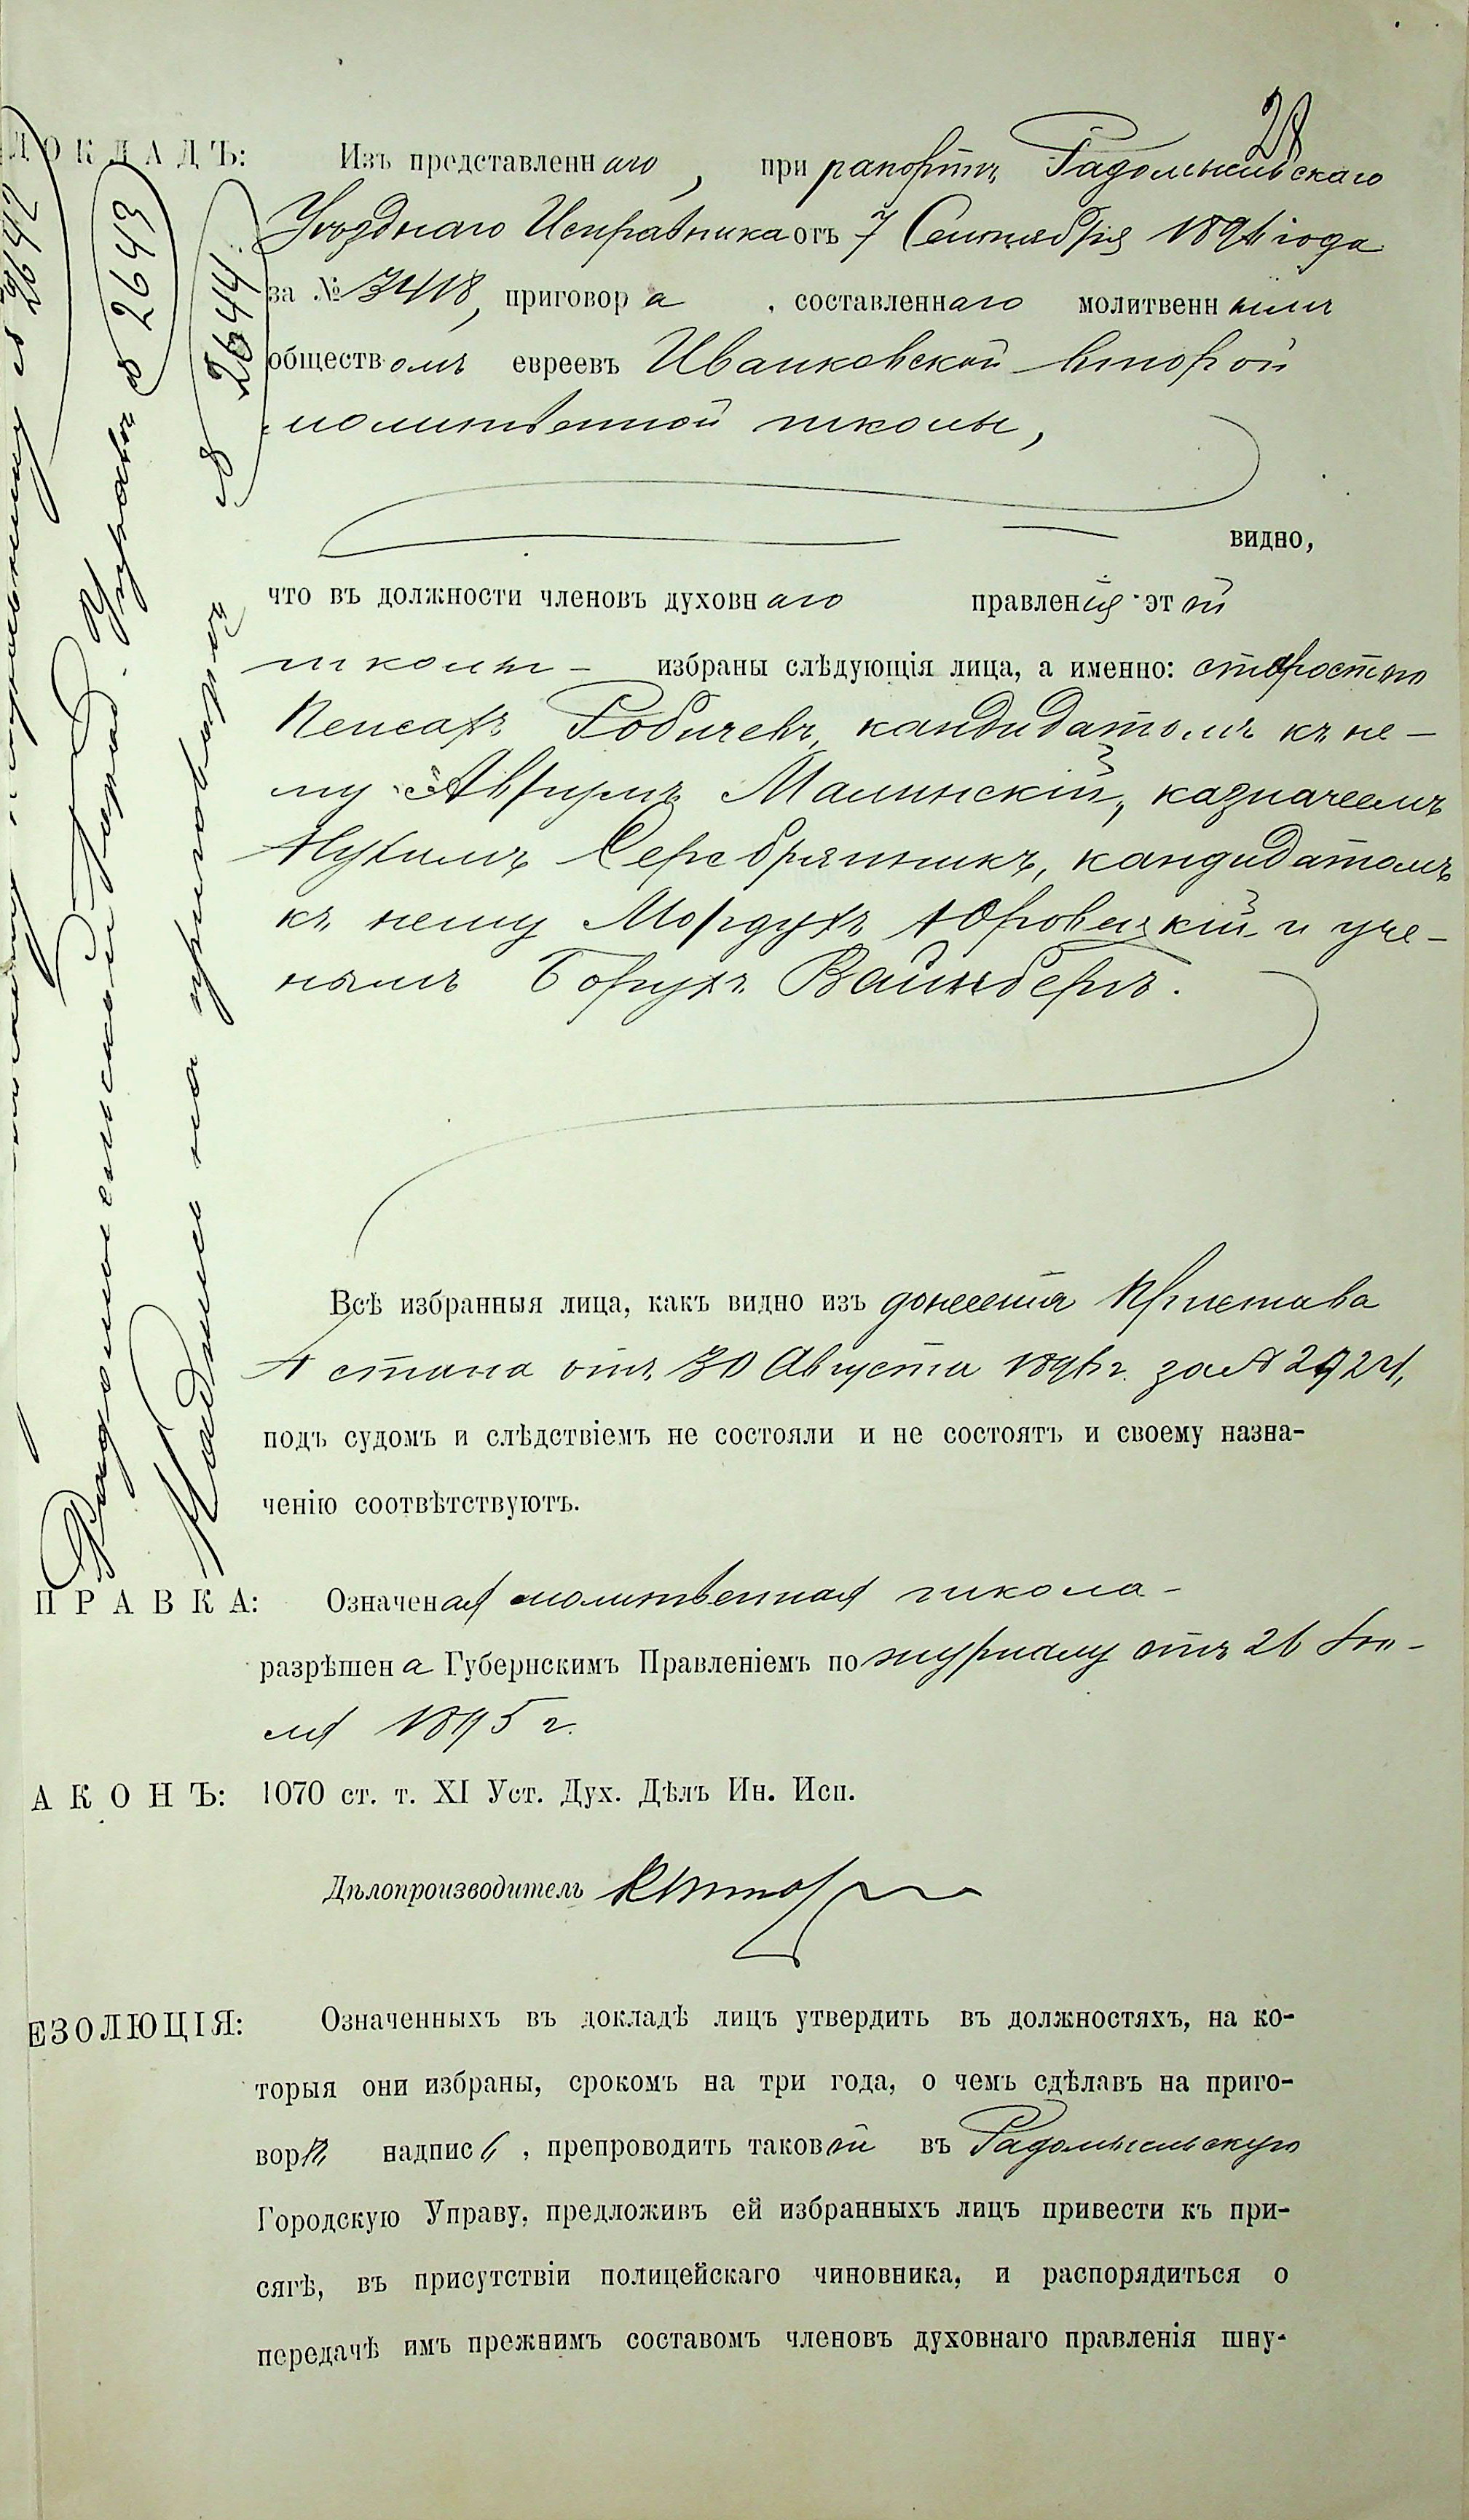 28
ДОКЛАДЪ: Изъ представленнаго, при рапортѣ Радомысльскаго
Уѣзднаго Исправника отъ 7 Сентября 189 года
за № 3418, приговора, составленнаго молитвеннымъ
обществомъ евреевъ Иванковской второй
молитвенной школы,
видно,
что въ должности членовъ духовнаго правленія этой
школы – избраны слѣдующія лица, а именно: старостою
Пейсахъ Робичевъ, кандидатомъ къ не-
му Аврумъ Малинскій, казначеемъ
Нухимъ Серебрянникъ, кандидатомъ
къ нему Мордухъ Юровецкій и уче-
нымъ Борухъ Вайнбергъ.
Всѣ избранныя лица, какъ видно изъ донесенія Пристава
1 стана отъ 30 Августа 189 г. за №
подъ судомъ и слѣдствіемъ не состояли и не состоятъ и своему назна-
ченію соотвѣтствуютъ.
ПРАВКА: Означеная молитвенная школа –
разрѣшена Губернскимъ Правленіемъ по журналу отъ 26 Iю-
ля 1895 г.
АКОНЪ: 1070 ст. т. XI Уст. Дух. Дѣлъ Ин. Исп.
Дѣлопроизводитель
ЕЗОЛЮЦІЯ: Означенныхъ въ докладѣ лицъ утвердить въ должностяхъ, на ко-
торыя они избраны, срокомъ на три года, о чемъ сдѣлавъ на приго-
ворѣ надпись, препроводить таковой въ Радомысльскую
Городскую Управу, предложивъ ей избранныхъ лицъ привести къ при-
сягѣ, въ присутствіи полицейскаго чиновника, и распорядиться о
передачѣ имъ прежнимъ составомъ членовъ духовнаго правленія шну-
№ 2642
Радомысльской Город. Управѣ № 2643
Надпись на приговорѣ № 2644